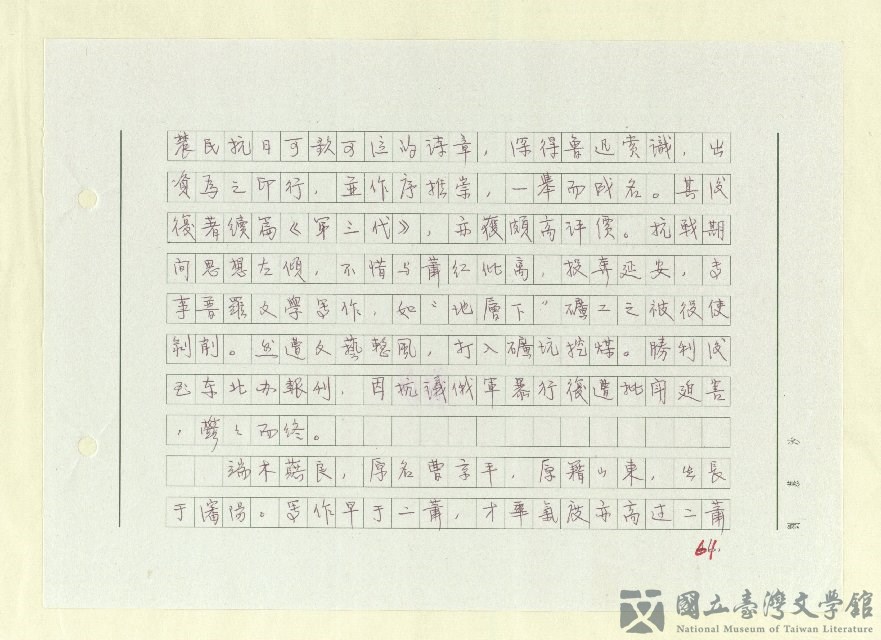 農民抗日可歌可泣的诗章，深得魯迅赏識，出
资為之印行，並作序推崇，一舉而成名。其後
復著續篇《第三代》，亦獲頗高評價。抗戰期
间思想左傾，不惜与蕭红仳离，投奔延安，
事普羅文學写作，如〝地層下〞礦工之被役使
剝削。 遭文藝整風，打入礦坑挖煤。勝利後
东北办報刊，因抗議俄軍暴行後遭批鬥迫害
，鬱々而终。
端木蕻良，原名曹京平，原籍山東，生長
于瀋陽。写作早于二蕭，才華氣度亦高过二蕭
64.
國立臺灣文學館
National Museum of Taiwan Literature